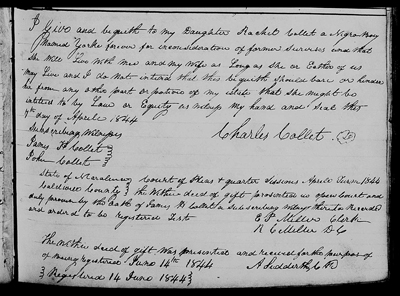 I Give and bequith to my Daughter Rachel Collet a Negro Boy
Named York forever for inconsideration of former Services and that
she will Live with me and my wife as Long as she or Eather of us
may Live and I do Not intend that this bequith should bare or hinder
her from any other part or portion of my estate that She might be
intitled to by Law or Equity as witness my hand and Seal this
7th day of Aprile 1844
Subscribing Witnesses
Charles Collet
James H Collet
John Collet
State of N Carolina Court of Pleas & quarter Sessions Aprile Term 1844
Caldwell County the Within deed of gift was proven in open Court and
duly proven by the oath of James H Collet a Subscribing witness thereto Recorded
and ordred to be registered Test
E P Miller Clerk
R C Miller D C
The within deed of gift was presented and received for the purpose of
being registered June 14th 1844
Registered 14 June 1844